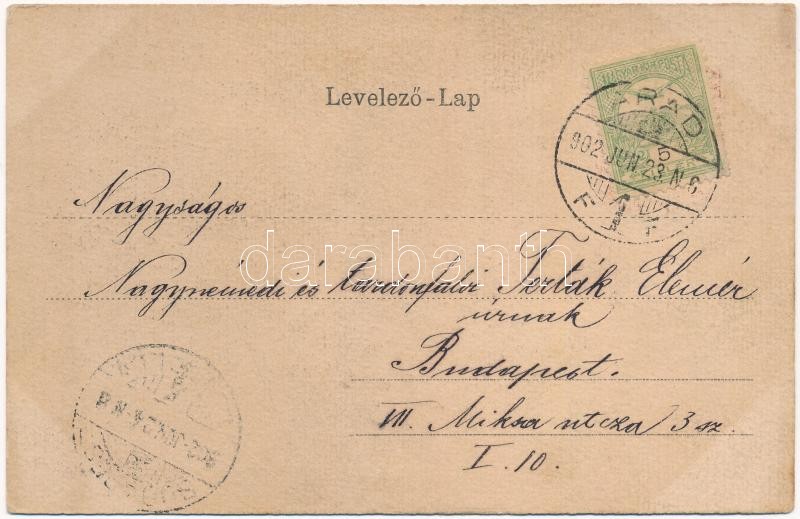 Levelező-Lap
MAGYAR KIR. POSTA
ARAD
5
902 JUN. 23. N. 6
Nagyságos
Nagynemedi és tardonfalvi Terták Elemér
úrnak
Budapest.
VII. Miksa utcza 3 sz.
I. 10.
darabanth